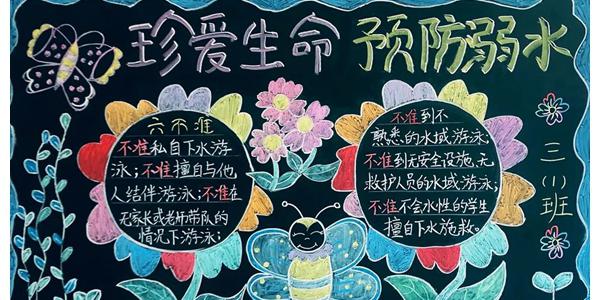 珍爱生命 预防弱水
六不准
不准私自下水游
泳；不准擅自与他
人结伴游泳；不准在
无家长或老师带队的
情况下游泳；
不准到不
熟悉的水域游泳，
不准到无安全设施、无
救护人员的水域游泳；
不准不会水性的学生
擅自下水施救。
三（1）班